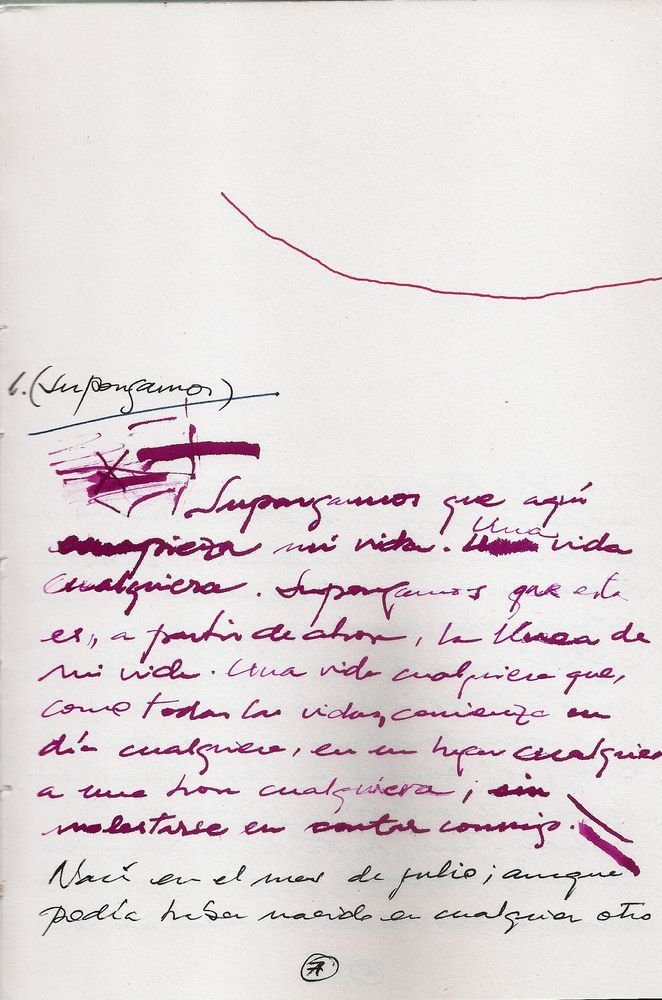 1. (Supongamos)
Supongamos que aquí
empieza mi vida. Una vida
cualquiera. Supongamos que esta
es, a partir de ahora, la línea de
mi vida. Una vida cualquiera que,
como todas las vidas, comienza un
día cualquiera, en un lugar cualquier
a una hora cualquiera; sin
molestarse en contar conmigo.
Nací en el mes de julio; aunque
podía haber nacido en cualquier otro
7